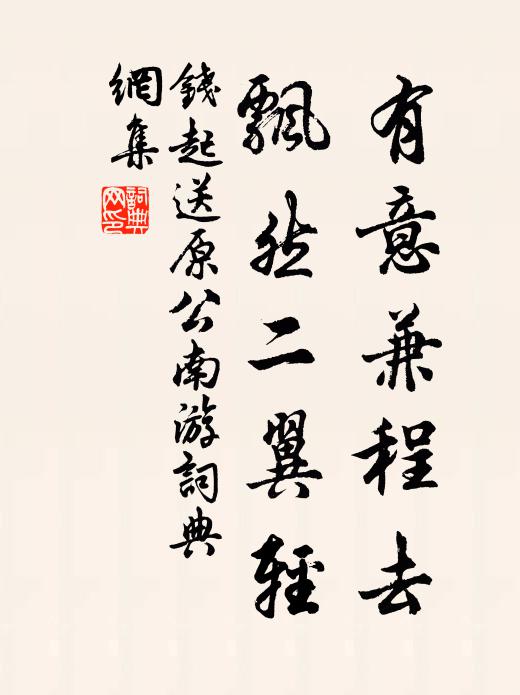 有意兼程去
飄然二翼輕
錢起送原公南游詞典
網集
詞典網印